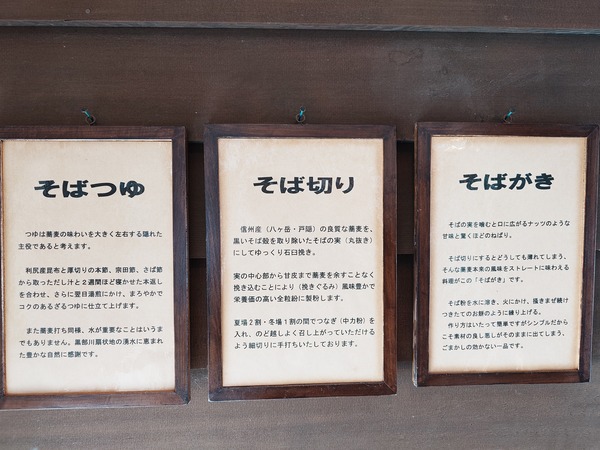 そばつゆ
つゆは蕎麦の味わいを大きく左右する隠れた
主役であると考えます。
利尻産昆布と厚切りの本節、宗田節、さば節
から取っただし汁と2週間ほど寝かせた本返し
を合わせ、さらに翌日湯煎にかけ、まろやかで
コクのあるざるつゆに仕立て上げます。
また蕎麦打ち同様、水が重要なことはいうま
でもありません。黒部川扇状地の湧水に恵まれ
た豊かな自然に感謝です。
そば切り
信州産（八ヶ岳・戸隠）の良質な蕎麦を、
黒いそば殻を取り除いたそばの実（丸抜き）
にしてゆっくり石臼挽き。
実の中心部から甘皮まで蕎麦を余すことなく
挽き込むことにより（挽きぐるみ）風味豊かで
栄養価の高い全粒粉に製粉します。
夏場2割・冬場1割の間でつなぎ（中力粉）を
入れ、のど越しよく召し上がっていただける
よう細切りに手打ちいたしております。
そばがき
そばの実を噛むと口に広がるナッツのような
甘味と驚くほどのねばり。
そば切りにするとどうしても薄れてしまう、
そんな蕎麦本来の風味をストレートに味わえる
料理がこの「そばがき」です。
そば粉を水に溶き、火にかけ、掻きまぜ続け
つきたてのお餅のように練り上げる。
作り方はいたって簡単ですがシンプルだから
こそ素材の良し悪しがそのままに出てしまう、
ごまかしの効かない一品です。